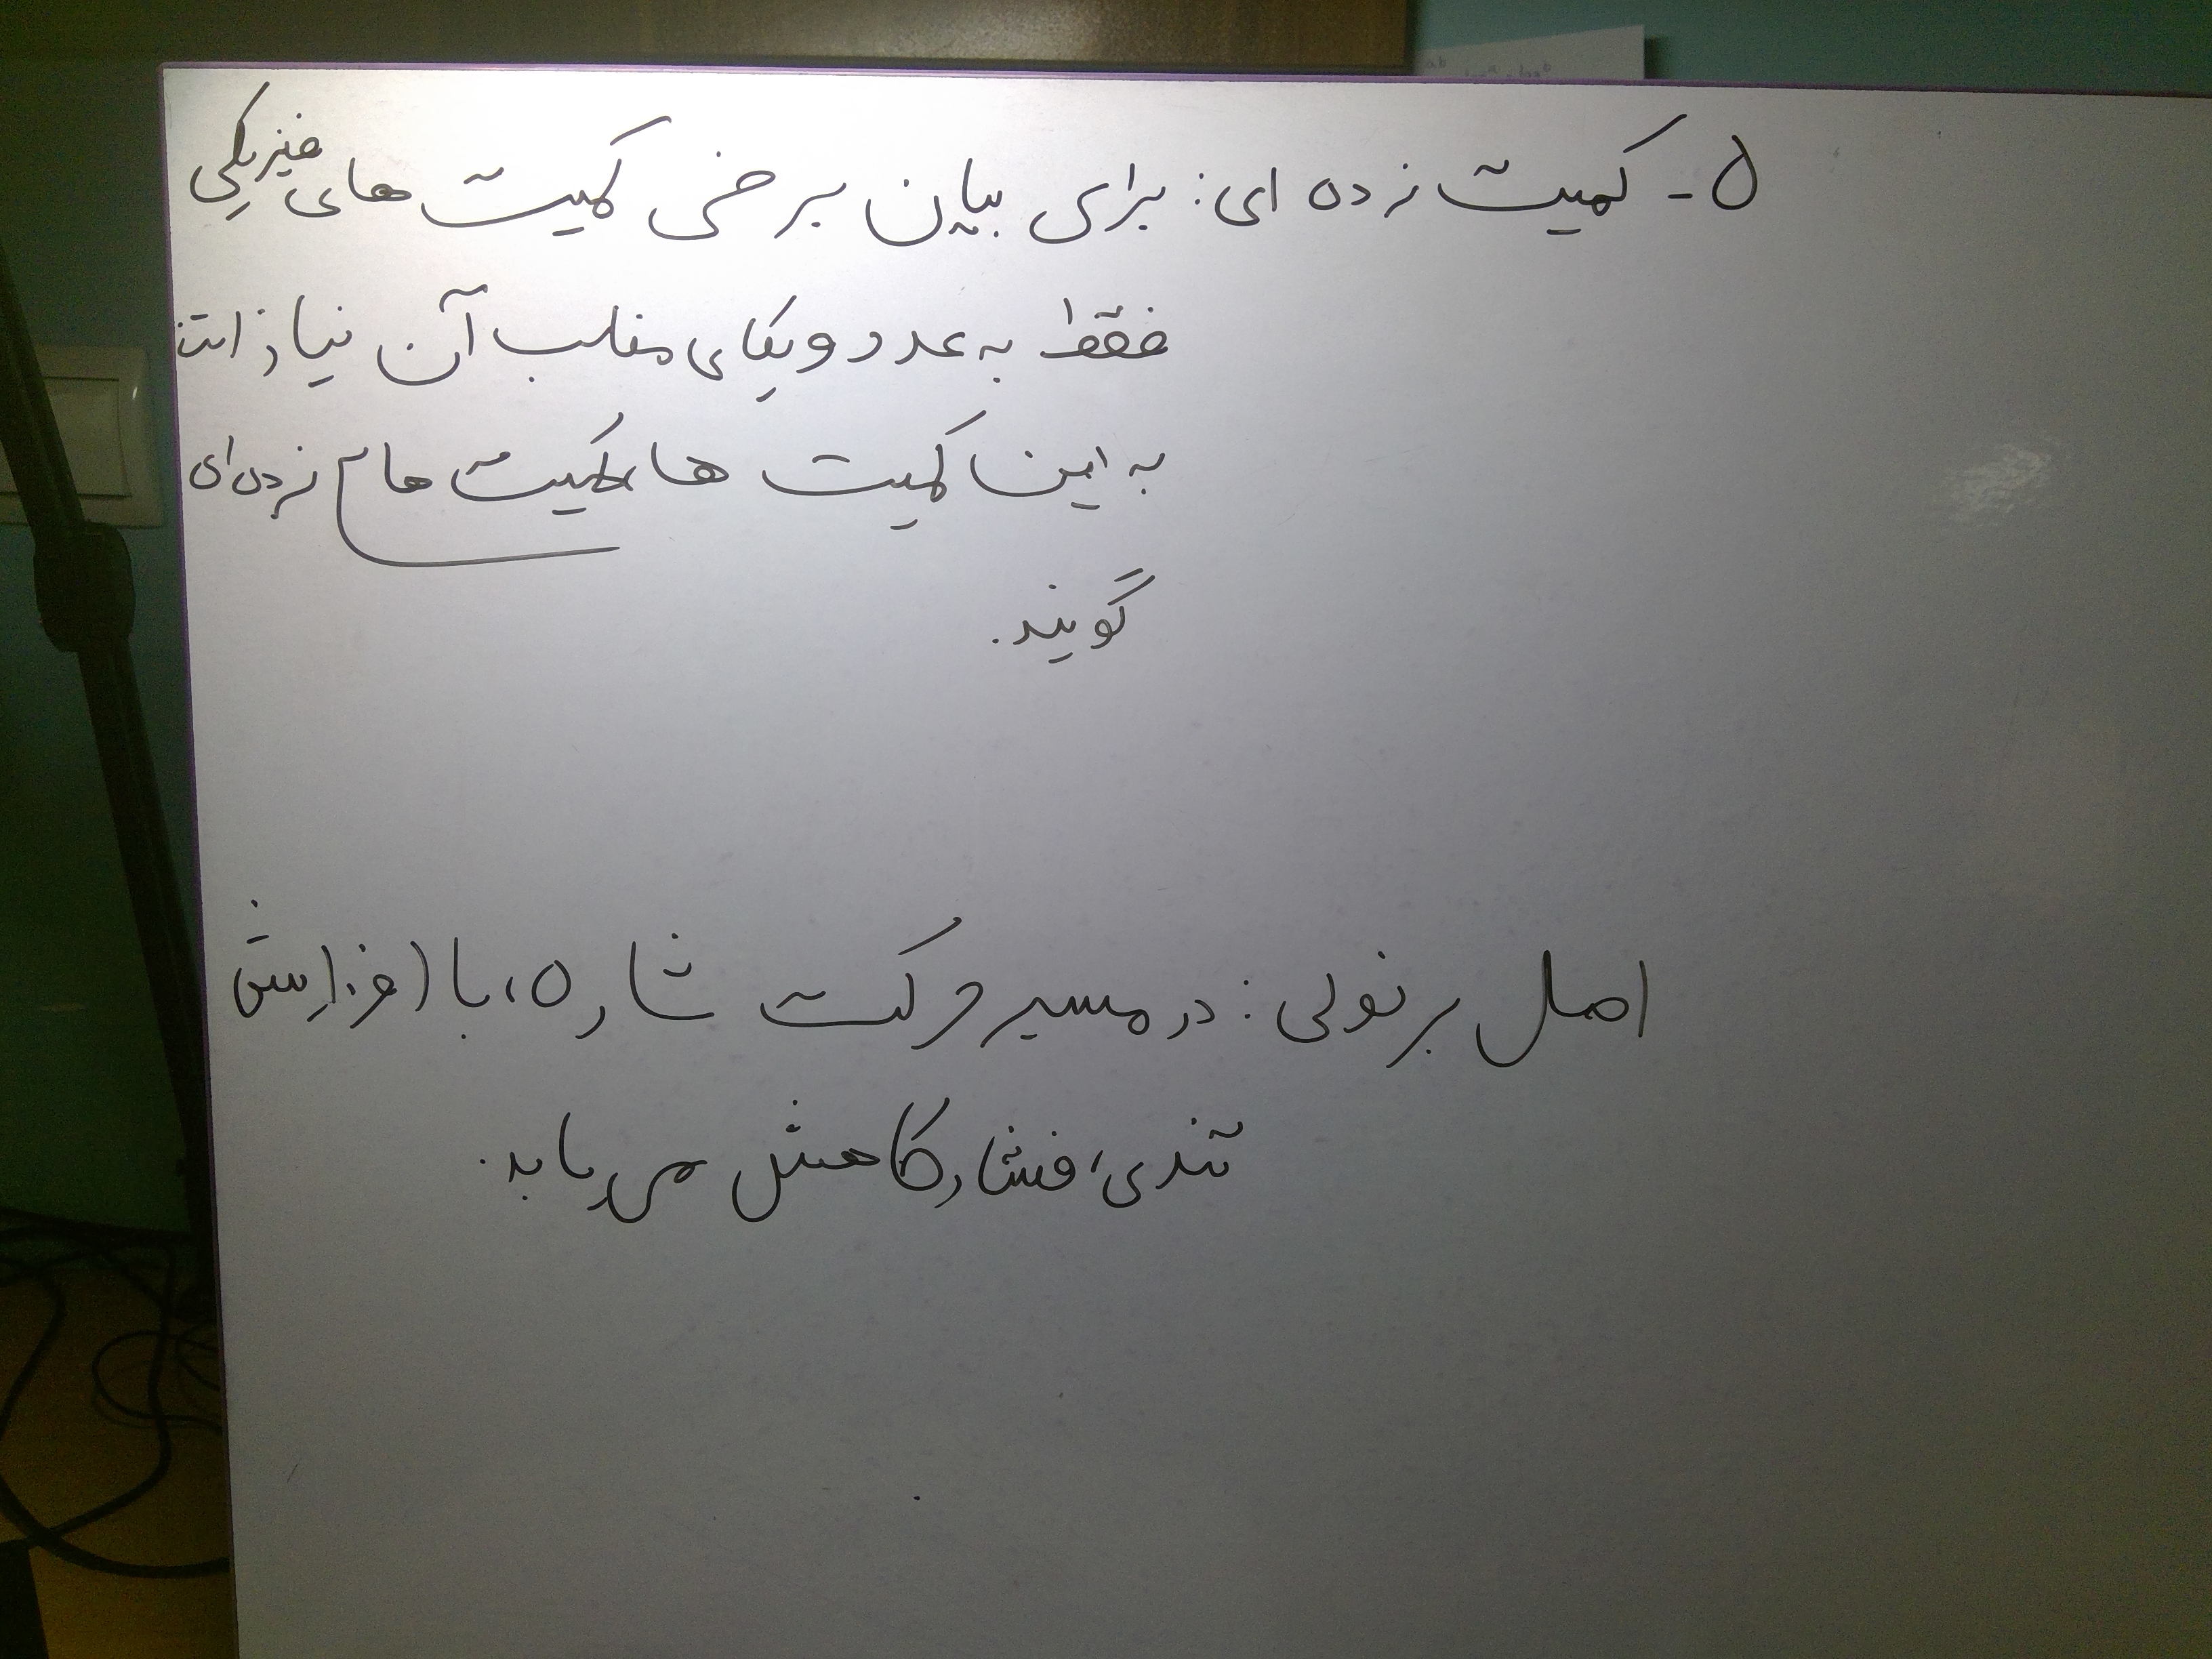 ۵- کمیت نرده ای: برای بیان برخی کمیت های فیزیکی
فقط به عدد و یکای مناسب آن نیاز است
به این کمیت ها کمیت های نرده‌ای
گویند.
اصل برنولی: در مسیر حرکت شاره، با افزایش
تندی، فشار کاهش می یابد.